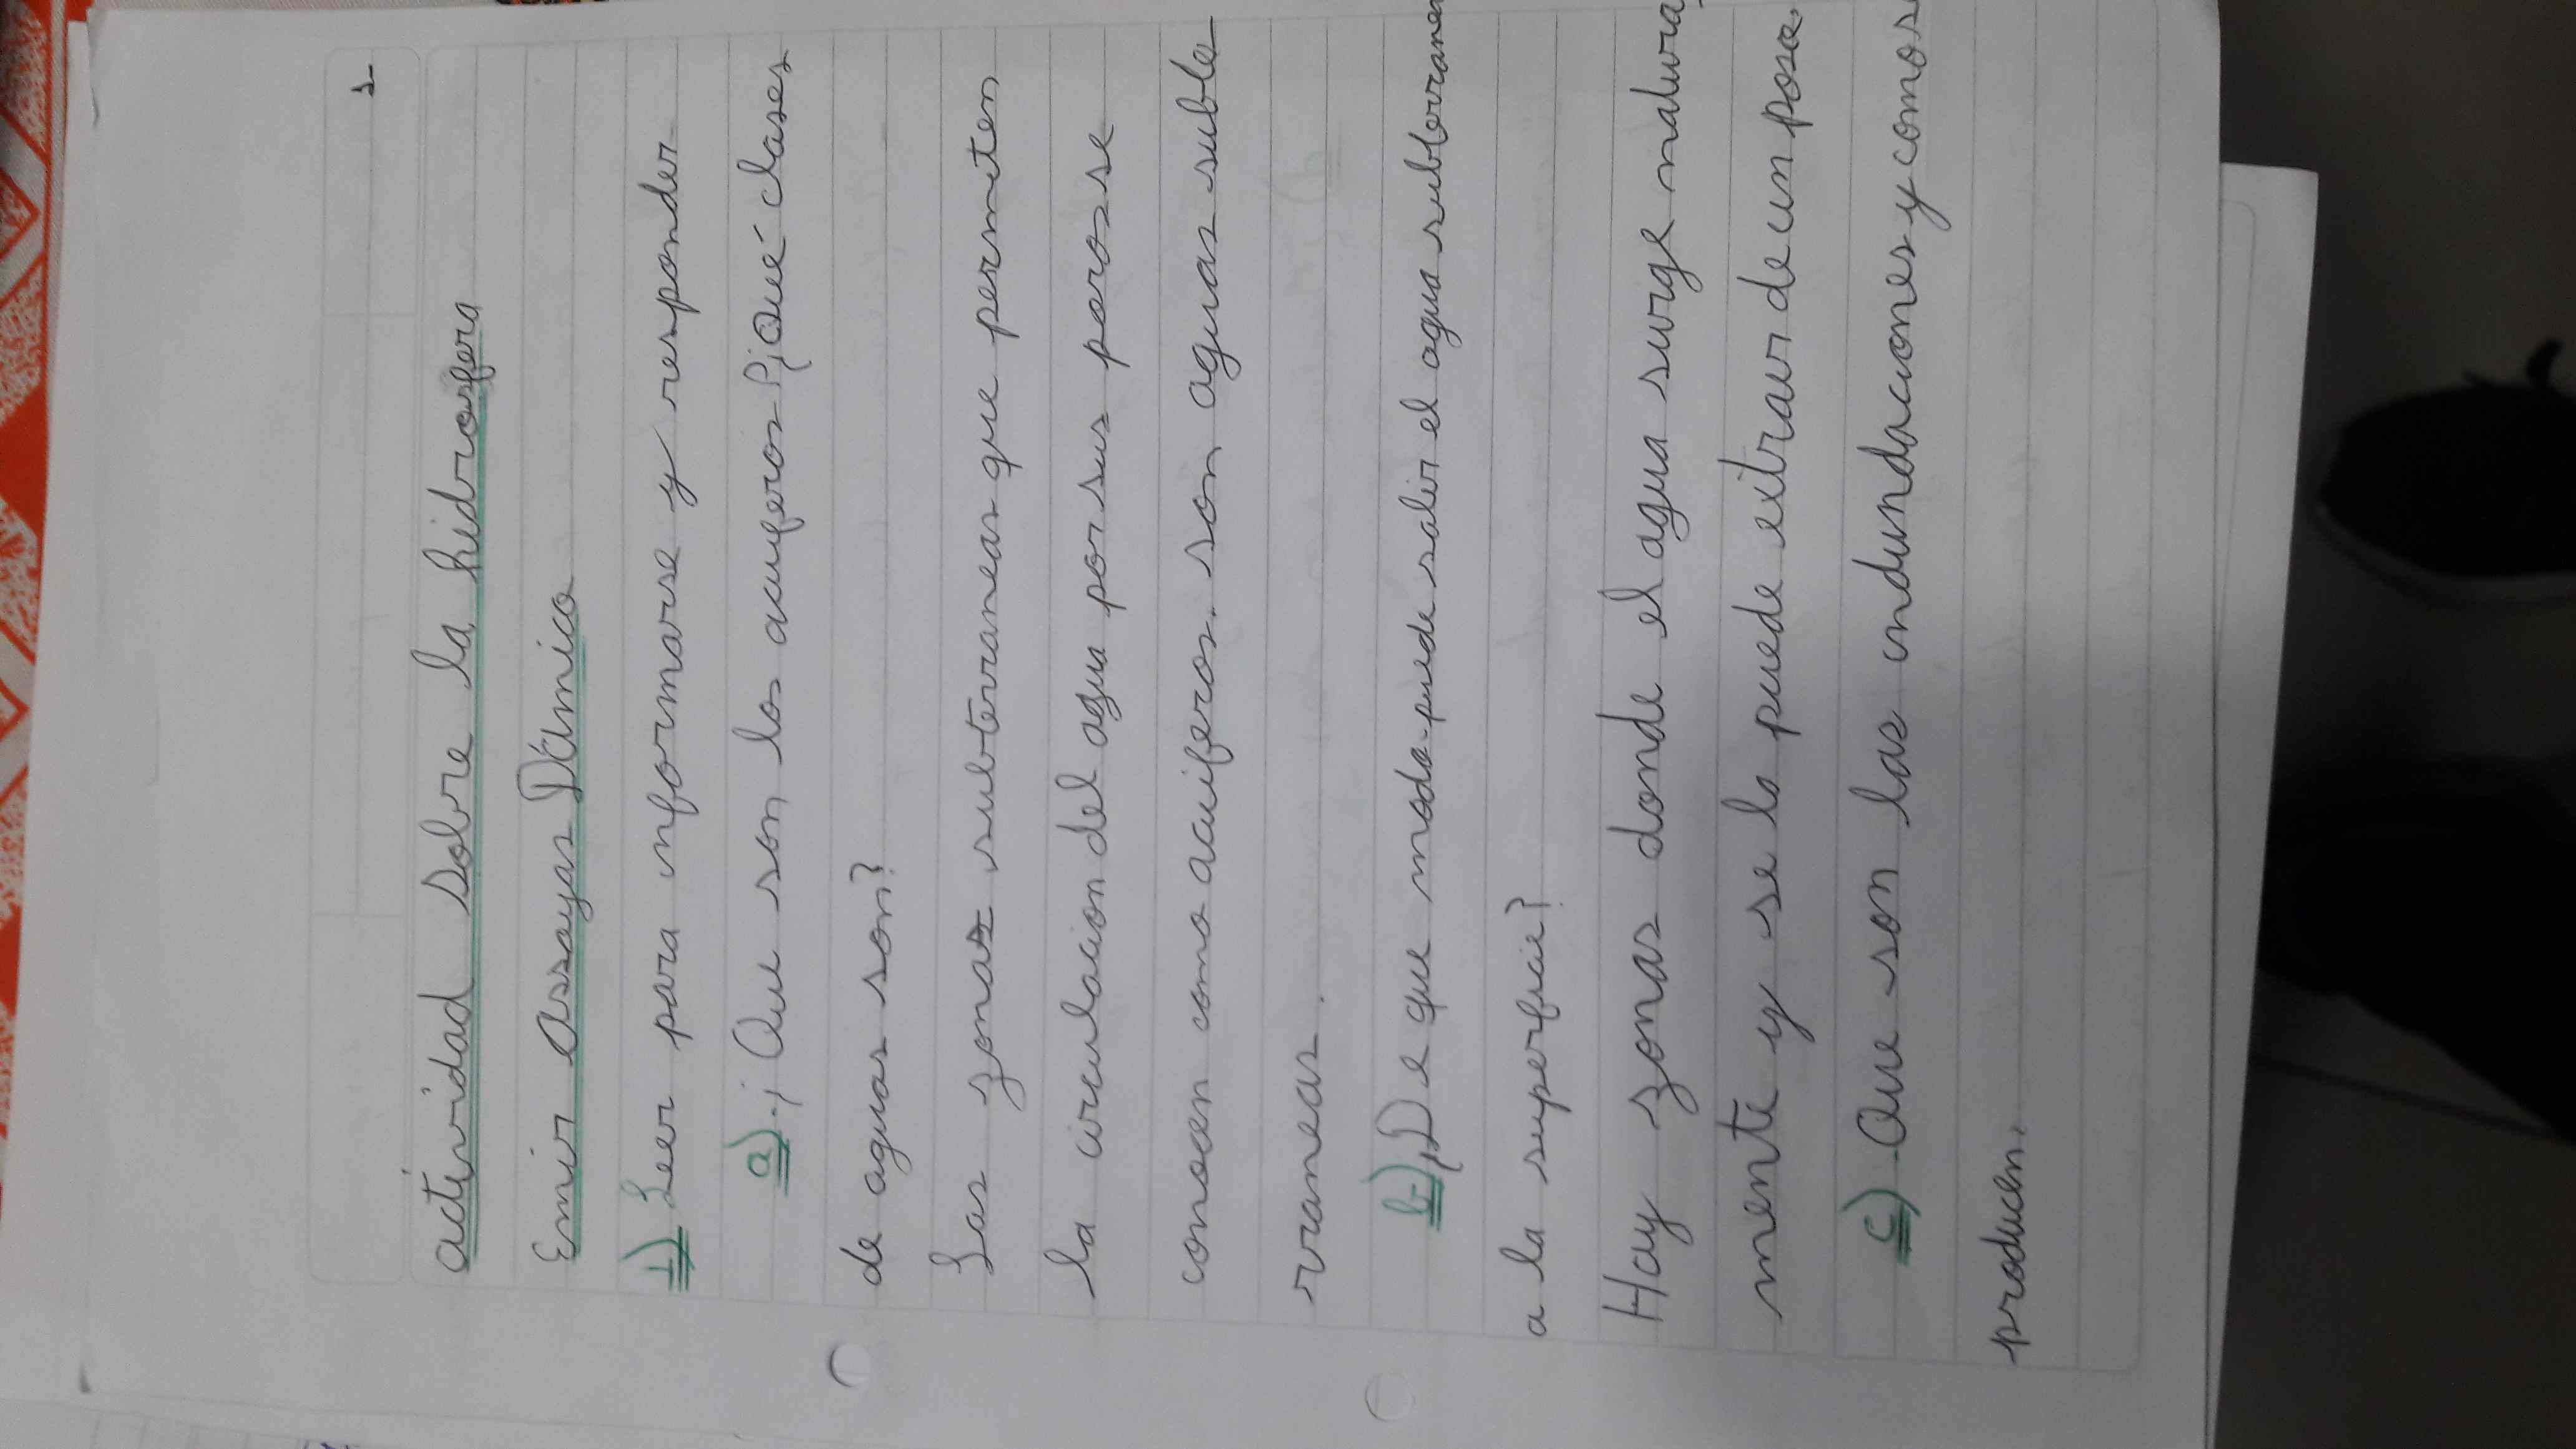 s-
actividad sobre la hidrosfera
Emir Assayas D'Amico
1) Leer para informarse y responder
a) ¡Que son los acuiferos?¡Qué clases
de aguas son?
Las zonas subterraneas que permiten
la circulacion del agua por sus poros se
conocen como acuiferos. son aguas subte
rraneas.
b) ¡De que modo puede salir el agua subterranea
a la superficie?
Hay zonas donde el agua surge natural
mente y se lo puede extraur de un pozo.
c) Que son las indundaciones y como s
producen.